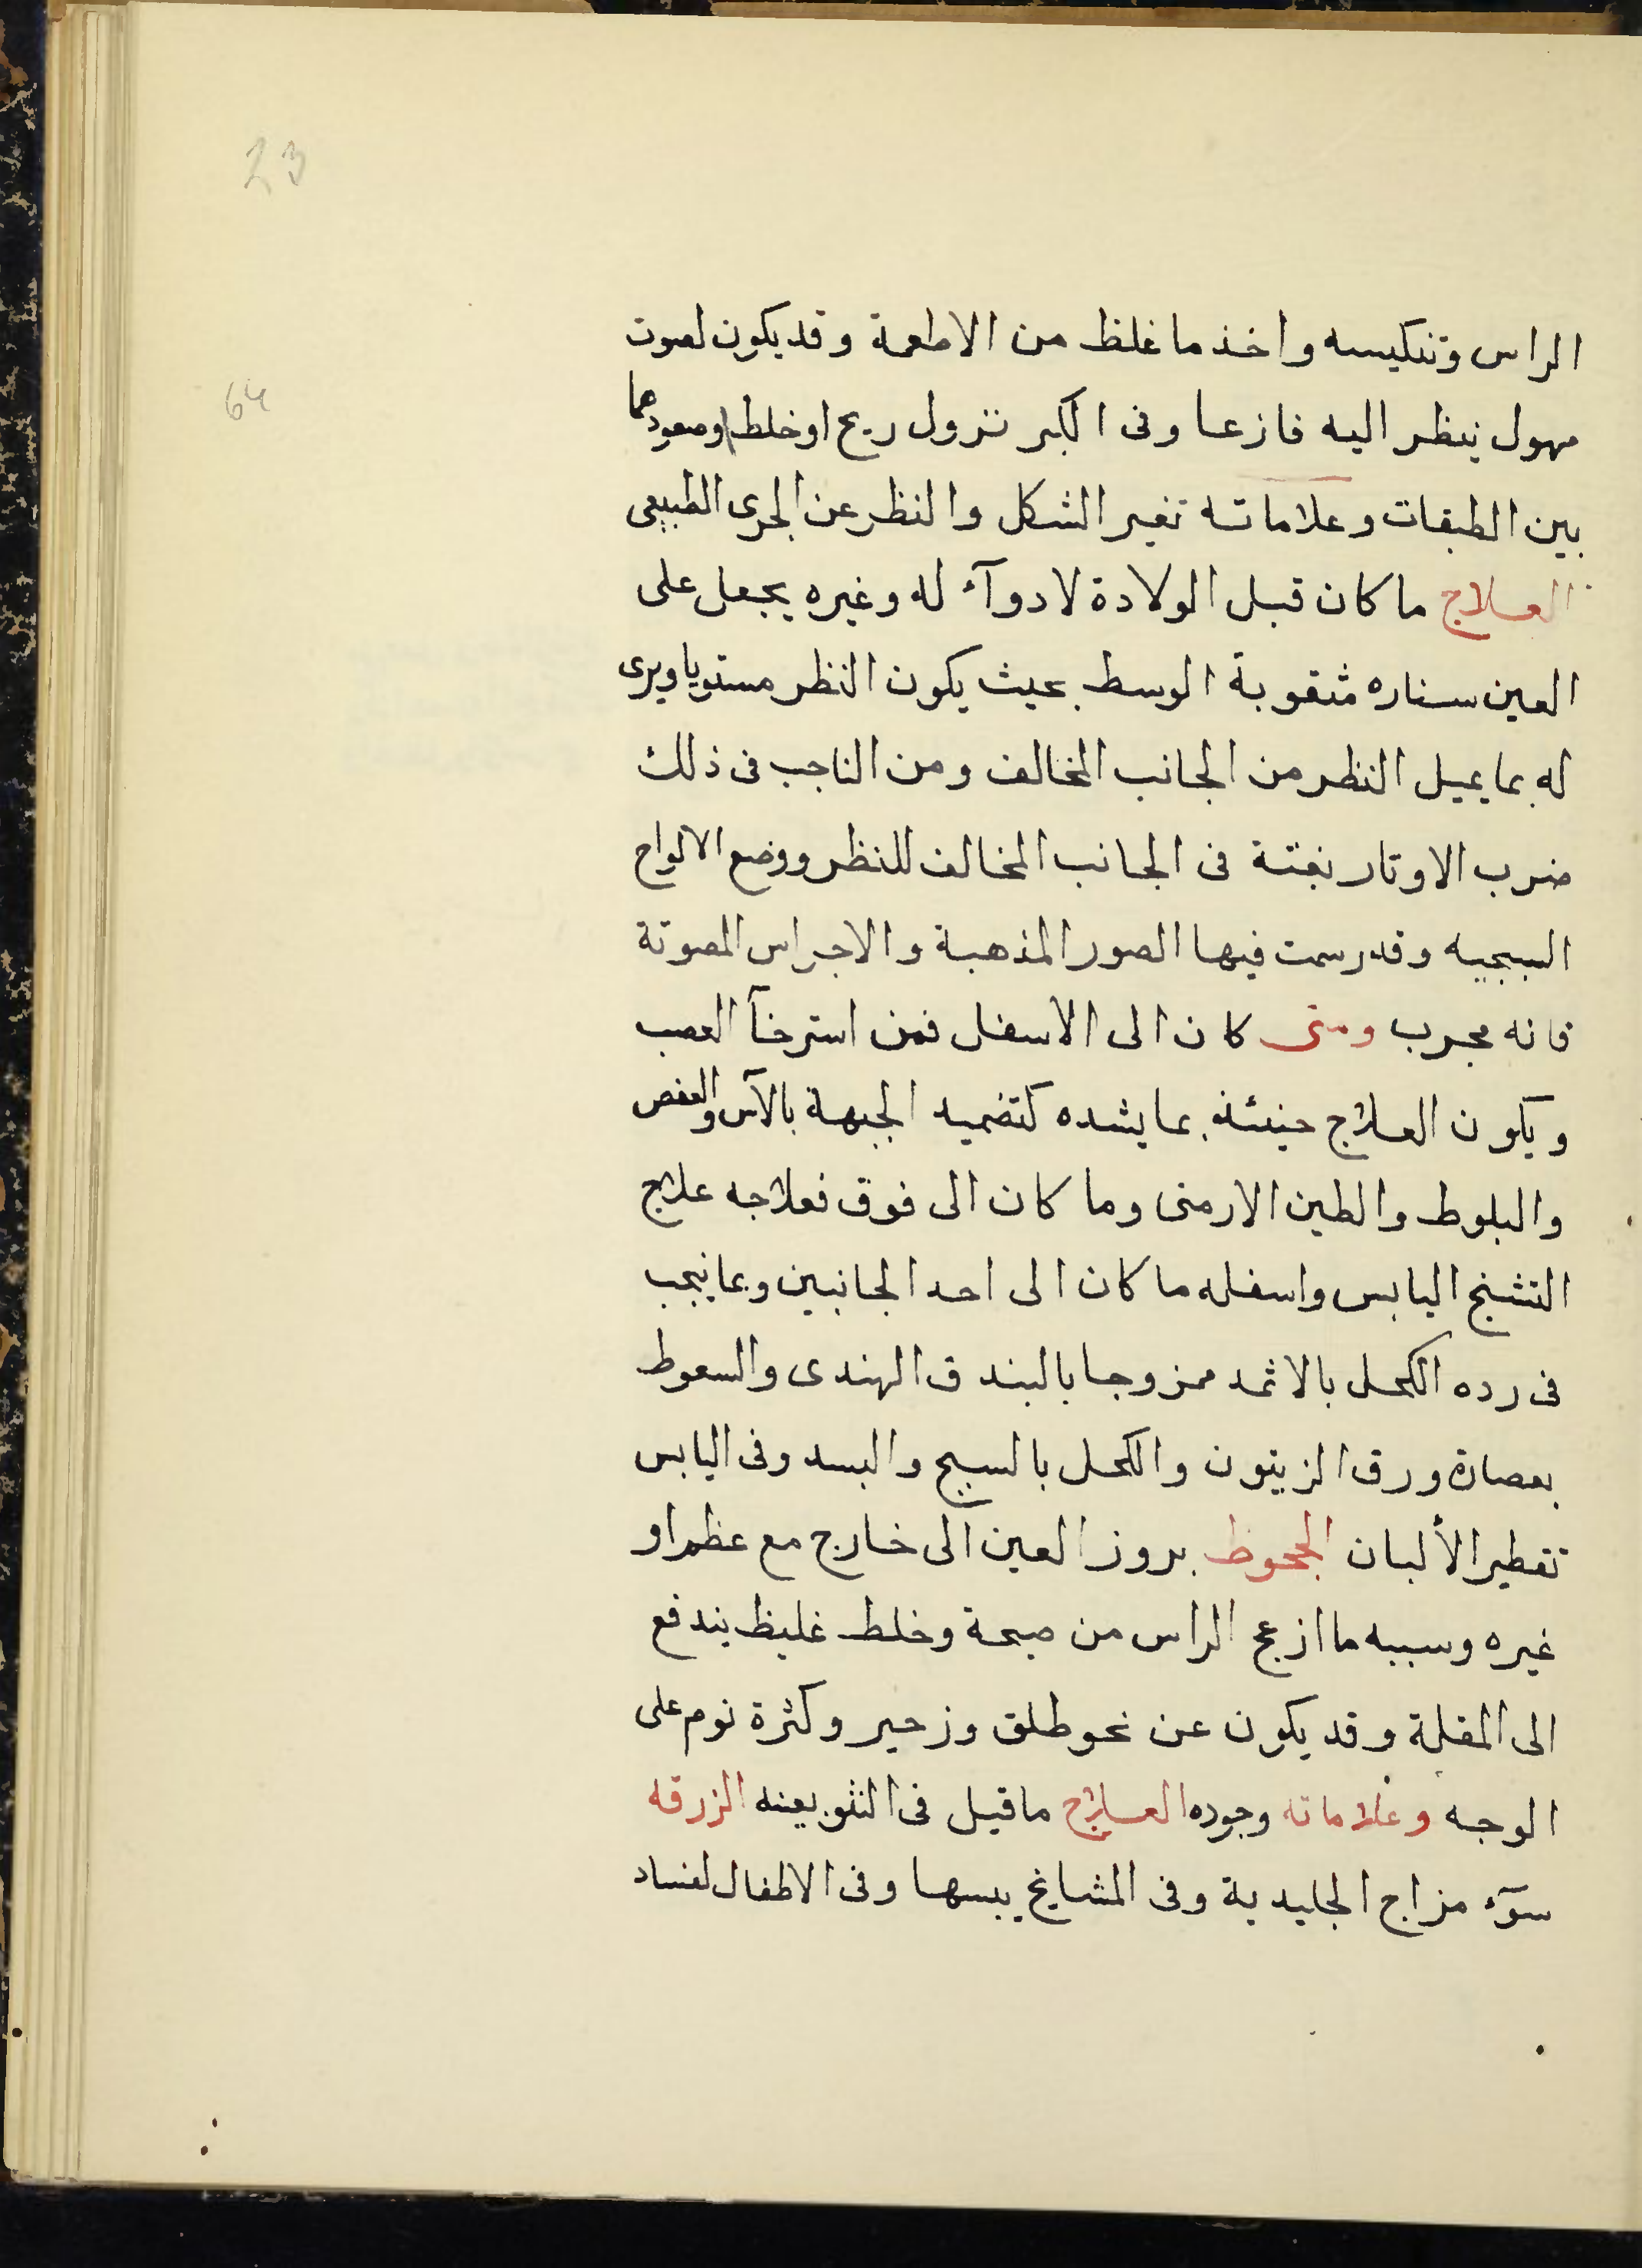 23
64
الراس وتنكيسه واخذ ما غلظ من الاطعمة وقد يكون لصوت
مهول ينظر اليه فازعا وفى الكبر نزول ريح او خلط اوصعودهما
بين الطبقات وعلاماته تغير الشكل والنظر عن المجرى الطبيعى
العلاج ما كان قبل الولادة لا دوآء له وغيره يجعل على
العين ستاره مثقوبة الوسط بحيث يكون النظر مستويا ويرى
له بما يميل النظر من الجانب المخالف ومن الناجب فى ذلك
ضرب الاوتار بغتة فى الجانب المخالف للنظر ووضع الالواح
السبجيه وقد رسمت فيها الصور المذهبة والاجراس المصوتة
فانه مجرب ومتى كان الى الاسفل فمن استرخآ العصب
ويكون العلاج حينئذ بما يشده كتضميد الجبهة بالآس والعفص
والبلوط والطين الارمنى وما كان الى فوق فعلاجه علاج
التشنج اليابس واسفله ما كان الى احد الجانبين وبما ينجب
فى رده الكحل بالاثمد ممزوجا بالبندق الهندى والسعوط
بعصارة ورق الزيتون والكحل بالسبج والبسد وفى اليابس
تقطير الألبان الجحوظ بروز العين الى خارج مع عظم او
غيره وسببه ما ازعج الراس من صيحة وخلط غليظ يندفع
الى المقلة وقد يكون عن نحو طلق وزحير وكثرة نوم على
الوجه وعلاماته وجوده العلاج ما قيل فى النتو بعينه الزرقه
سوٓء مزاج الجليدية وفى المشايخ يبسها وفى الاطفال لفساد